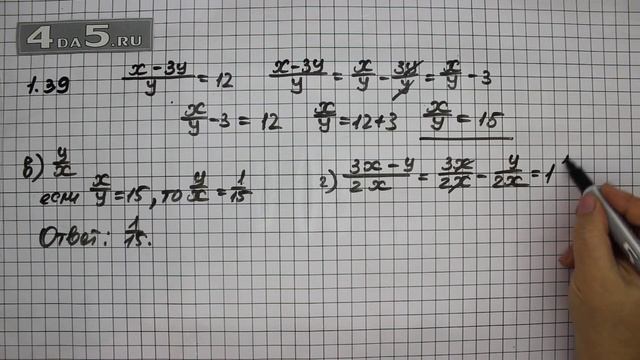 4DA5.RU
1.39 (x-3y)/y = 12 (x-3y)/y = x/y - 3y/y = x/y - 3
x/y - 3 = 12 x/y = 12+3 x/y = 15
в) y/x
если x/y = 15, то y/x = 1/15
Ответ: 1/15.
г) (3x-y)/(2x) = 3x/2x - y/2x = 1